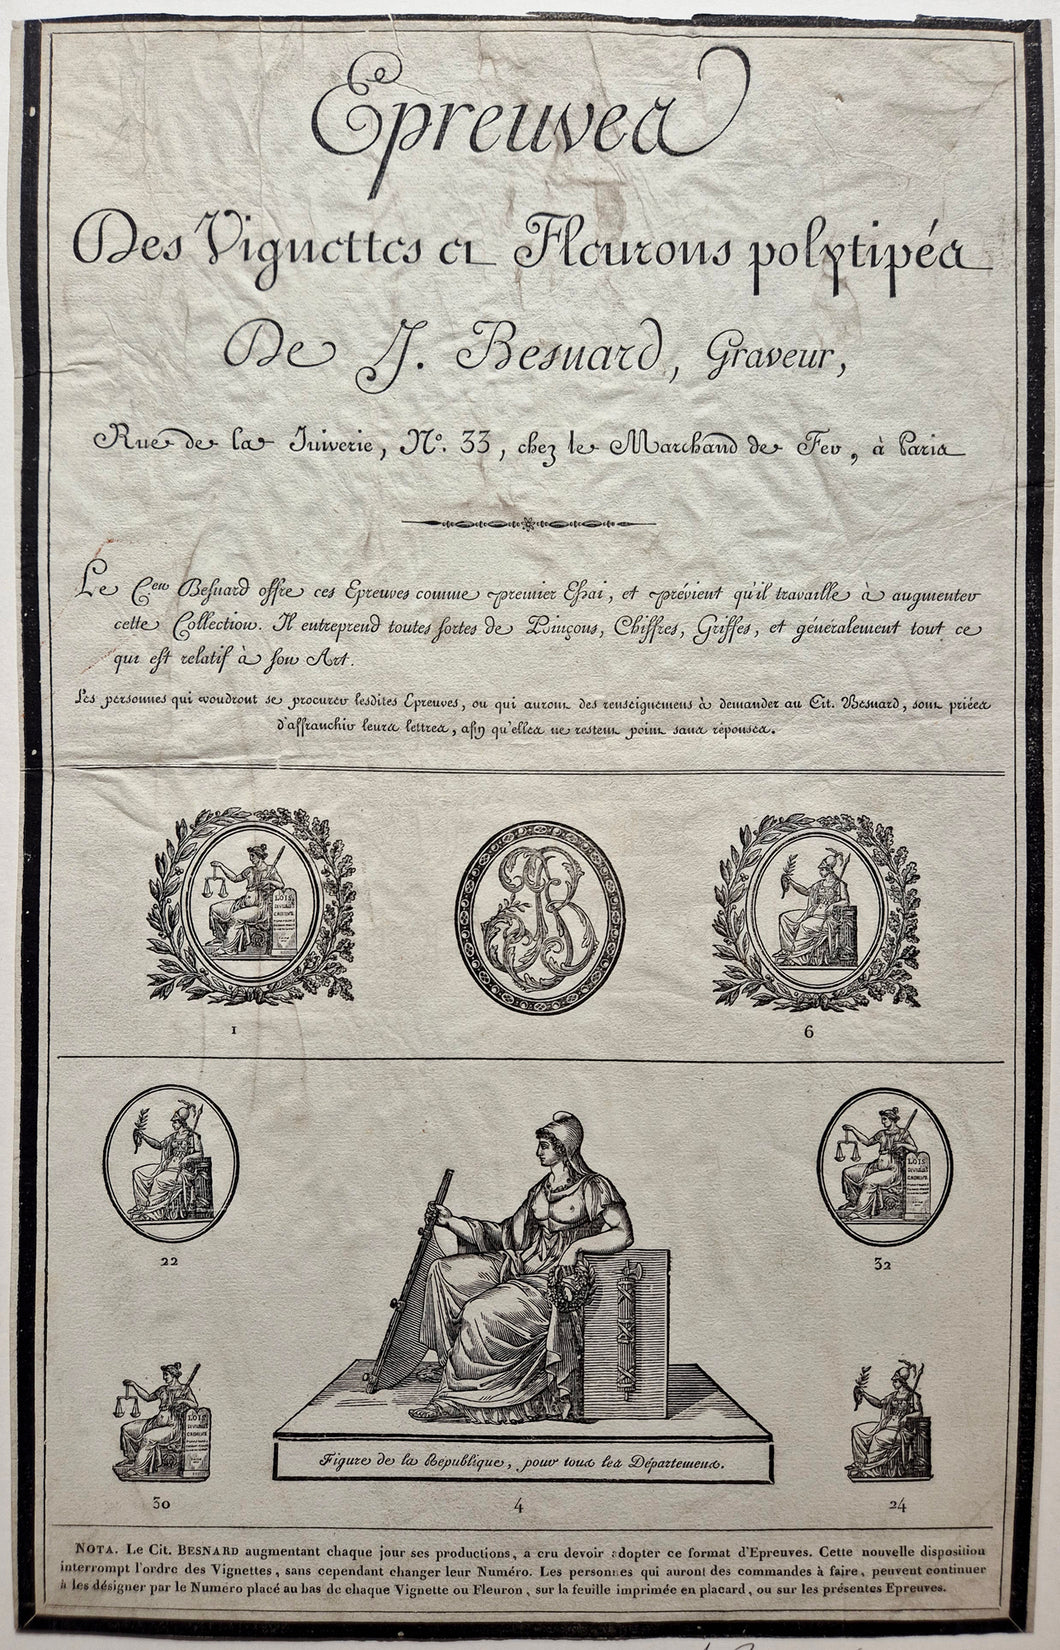 Epreuves
Des Vignettes et Fleurons polytipés
De J. Besnard, Graveur,
Rue de la Juiverie, N.º 33, chez le Marchand de Fer, à Paris
Le C.en Besnard offre ces Epreuves comme premier Essai, et prévient qu'il travaille à augmenter
cette Collection. Il entreprend toutes sortes de Poinçons, Chiffres, Griffes, et généralement tout ce
qui est relatif à son Art.
Les personnes qui voudront se procurer lesdites Epreuves, ou qui auront des renseignemens à demander au Cit. Besnard, sont priées
d'affranchir leurs lettres, afin qu'elles ne restent point sans réponses.
LOIS
JB
1
6
22
LOIS
32
LOIS
Figure de la Republique, pour tous les Départemens.
30
4
24
NOTA. Le Cit. BESNARD augmentant chaque jour ses productions, a cru devoir adopter ce format d'Epreuves. Cette nouvelle disposition
interrompt l'ordre des Vignettes, sans cependant changer leur Numéro. Les personnes qui auront des commandes à faire, peuvent continuer
à les désigner par le Numéro placé au bas de chaque Vignette ou Fleuron, sur la feuille imprimée en placard, ou sur les présentes Epreuves.